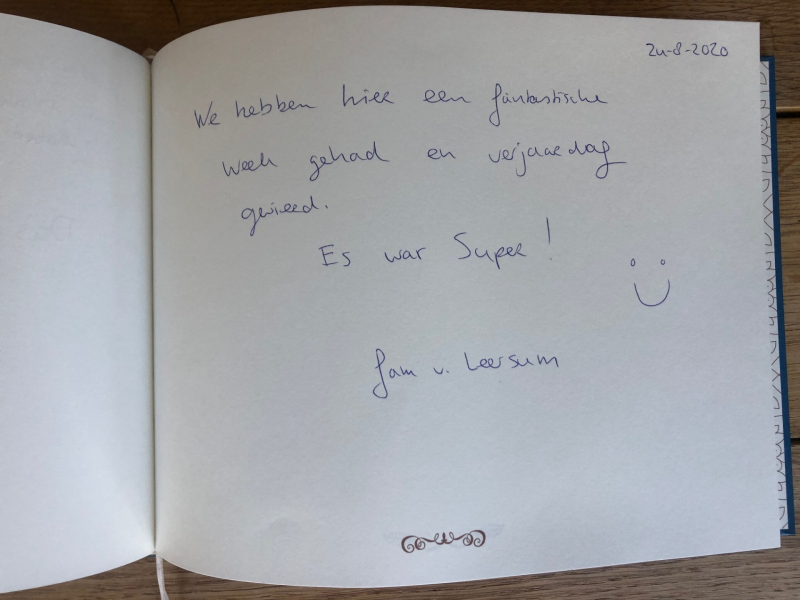 24-8-2020
We hebben hier een fantastische
week gehad en verjaardag
gevierd.
Es war Super!
fam v. Leersum